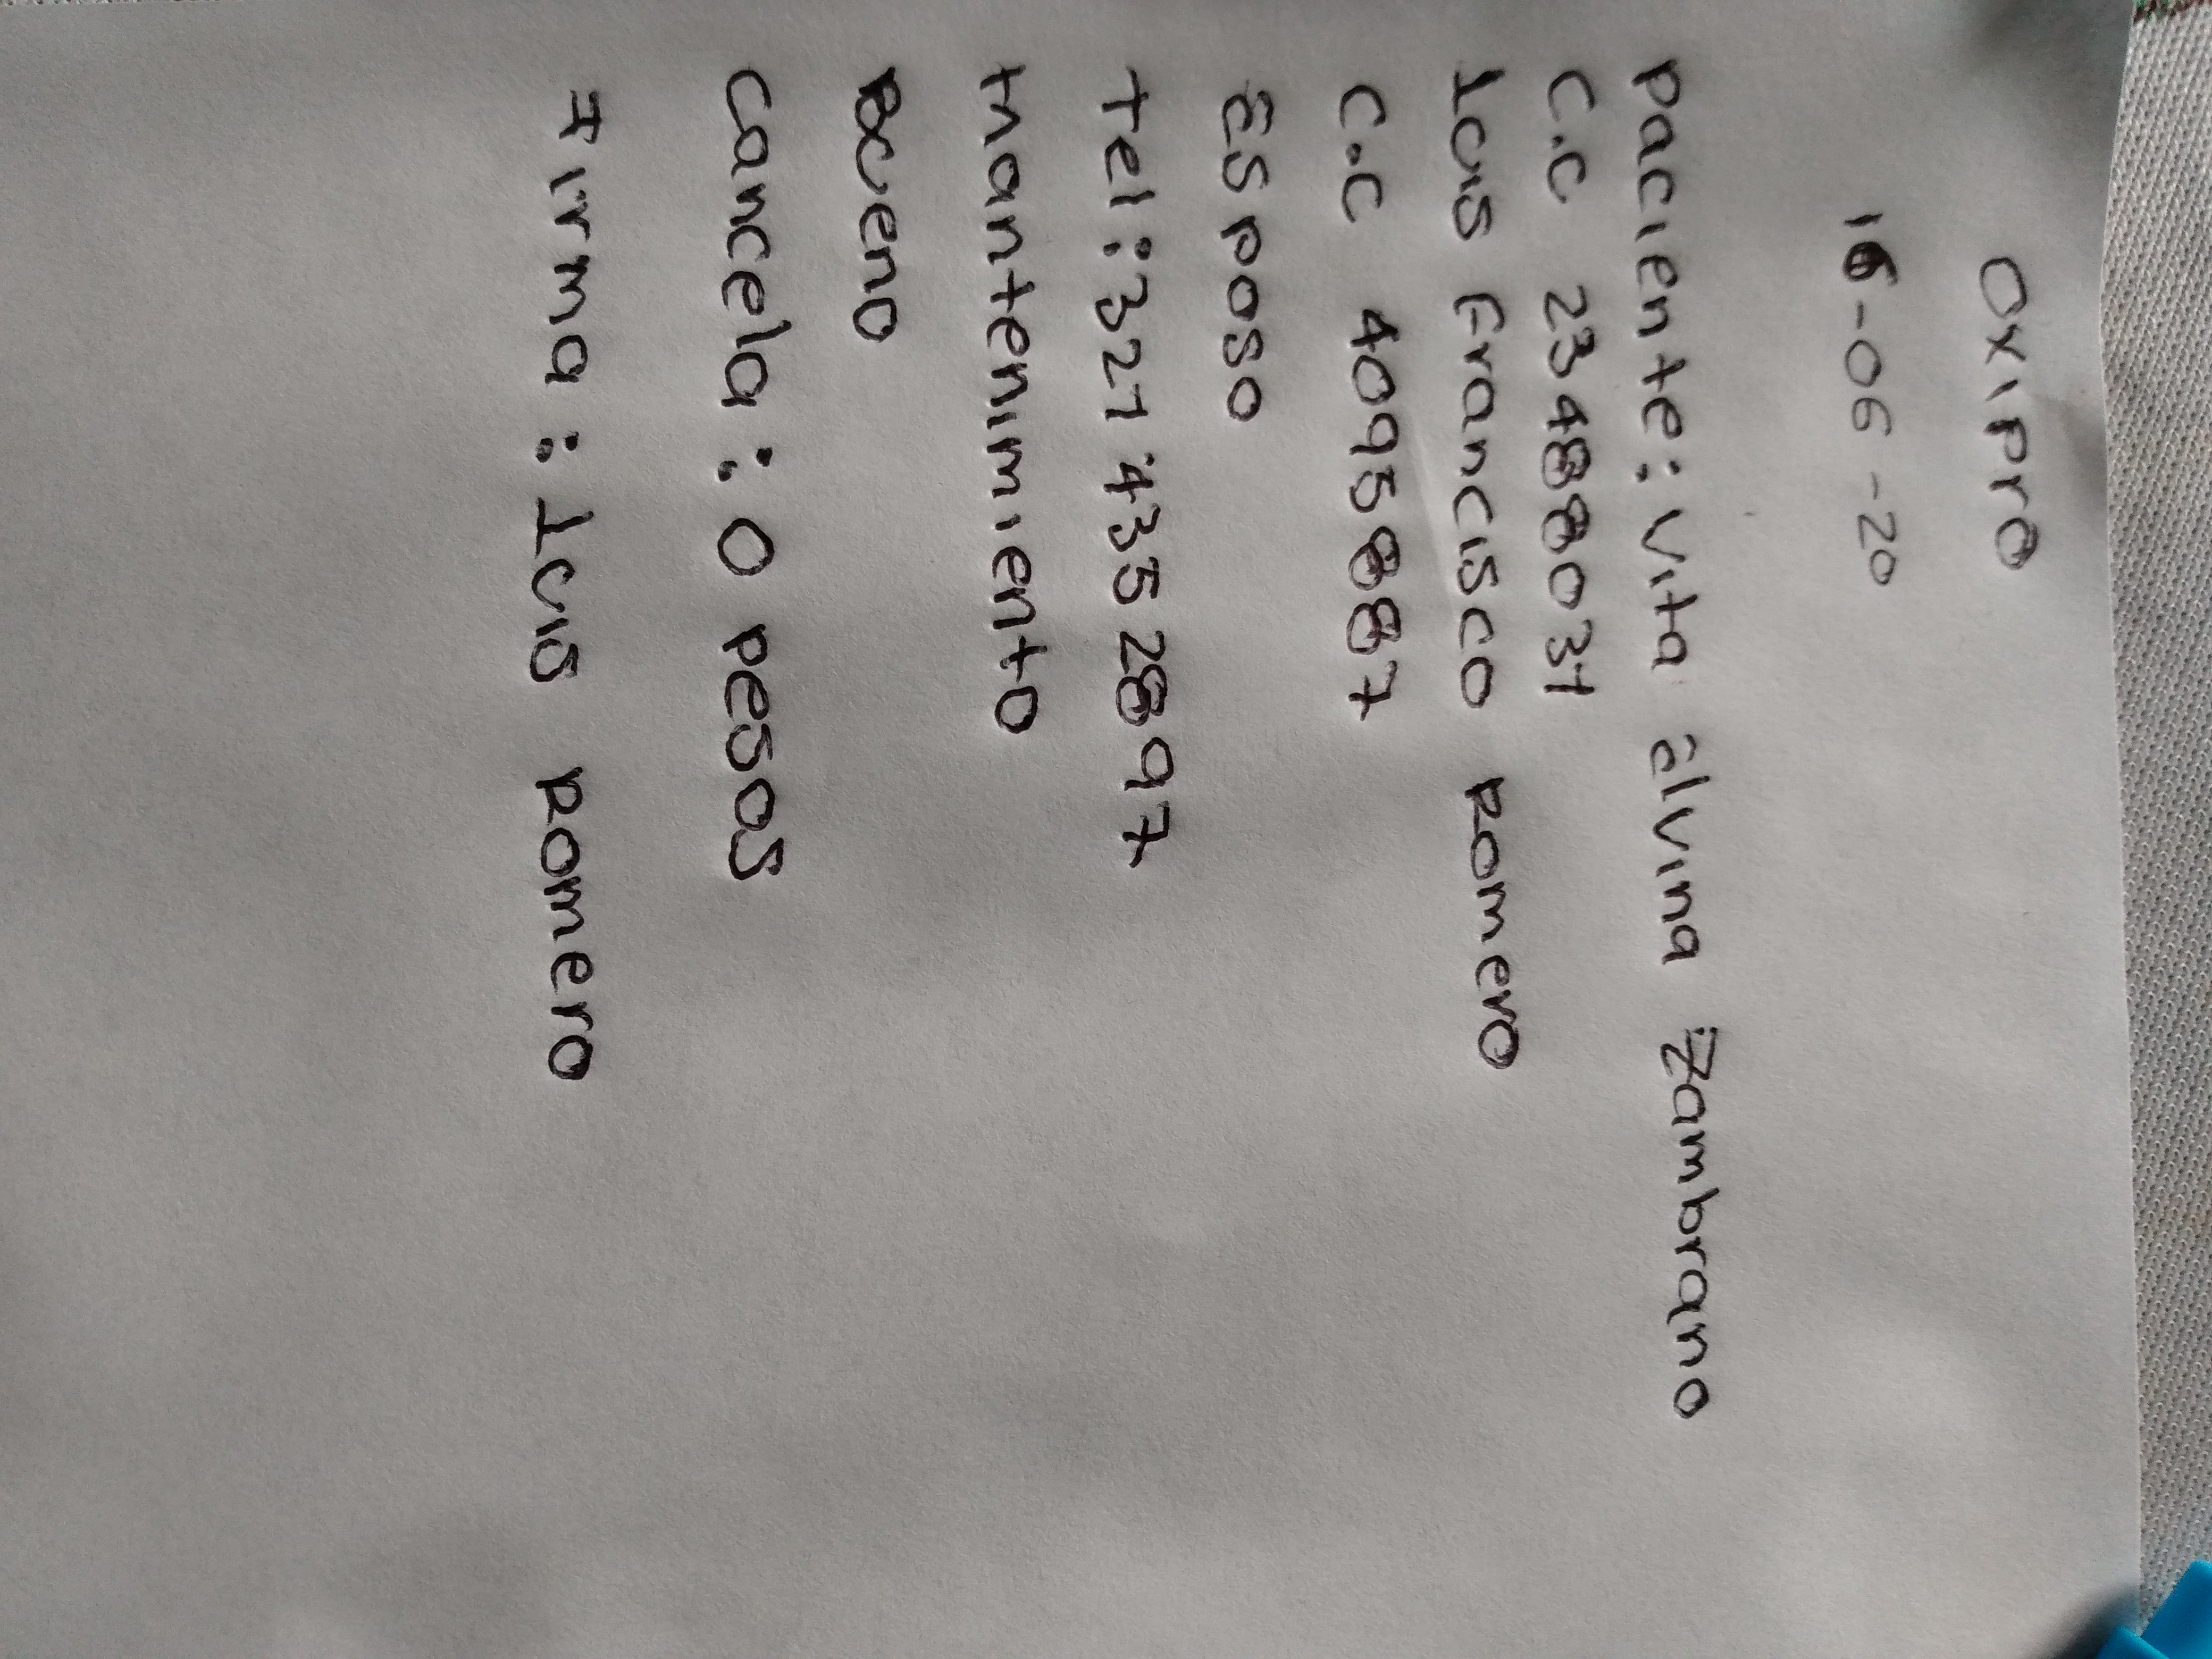 Oxipro
16-06-20
Paciente: Vita elvina Zambrano
C.C 23488031
Luis Francisco Romero
C.C 4095887
Esposo
Tel: 321 435 2897
Mantenimiento
Bueno
Cancela: 0 pesos
Firma: Luis Romero